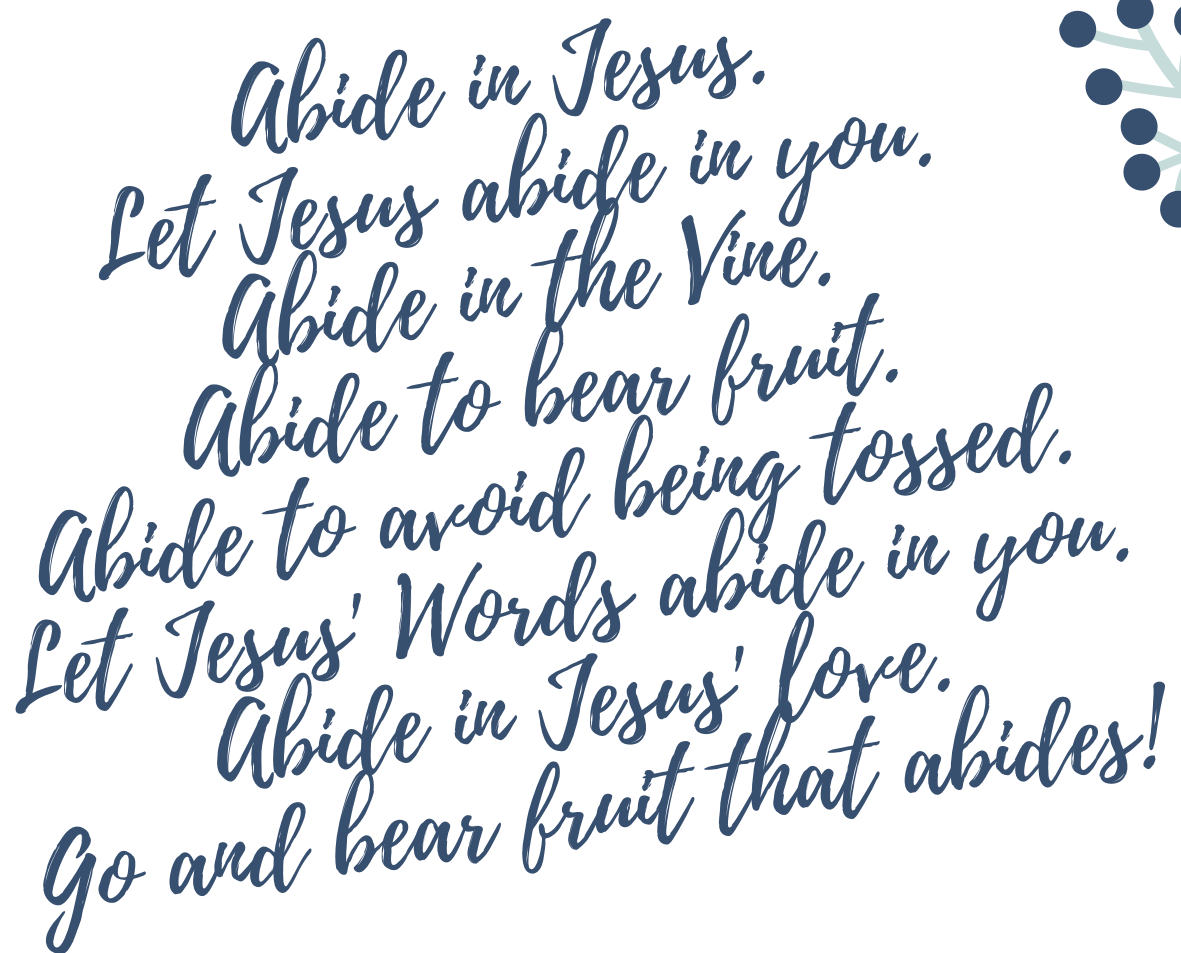 Abide in Jesus.
Let Jesus abide in you.
Abide in the Vine.
Abide to bear fruit.
Abide to avoid being tossed.
Let Jesus' Words abide in you.
Abide in Jesus' love.
Go and bear fruit that abides!